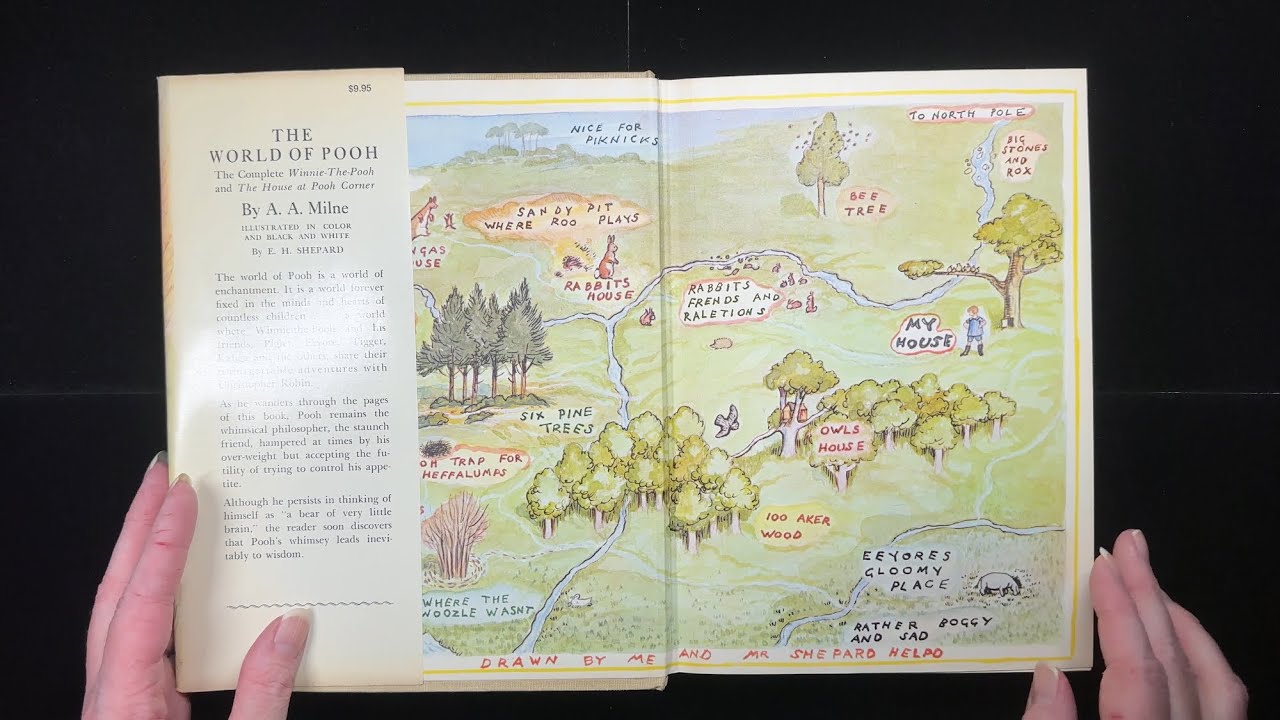 $9.95
THE
WORLD OF POOH
The Complete Winnie-The-Pooh
and The House at Pooh Corner
By A. A. Milne
ILLUSTRATED IN COLOR
AND BLACK AND WHITE
By E. H. SHEPARD
The world of Pooh is a world of
enchantment. It is a world forever
fixed in the minds and hearts of
countless children a world
where Winnie-the-Pooh and his
friends, Piglet, Eeyore, Tigger,
and the others, share their
unforgettable adventures with
Christopher Robin.
As he wanders through the pages
of this book, Pooh remains the
whimsical philosopher, the staunch
friend, hampered at times by his
over-weight but accepting the fu-
tility of trying to control his appe-
tite.
Although he persists in thinking of
himself as "a bear of very little
brain," the reader soon discovers
that Pooh's whimsey leads inevi-
tably to wisdom.
NICE FOR
PIKNICKS
TO NORTH POLE
BIG
STONES
AND
ROX
BEE
TREE
SANDY PIT
WHERE ROO PLAYS
NGAS
USE
RABBITS
HOUSE
RABBITS
FRENDS AND
RALETIONS
MY
HOUSE
SIX PINE
TREES
OWLS
HOUSE
OH TRAP FOR
HEFFALUMPS
100 AKER
WOOD
EEYORES
GLOOMY
PLACE
WHERE THE
WOOZLE WASNT
RATHER BOGGY
AND SAD
DRAWN BY ME AND MR SHEPARD HELPD